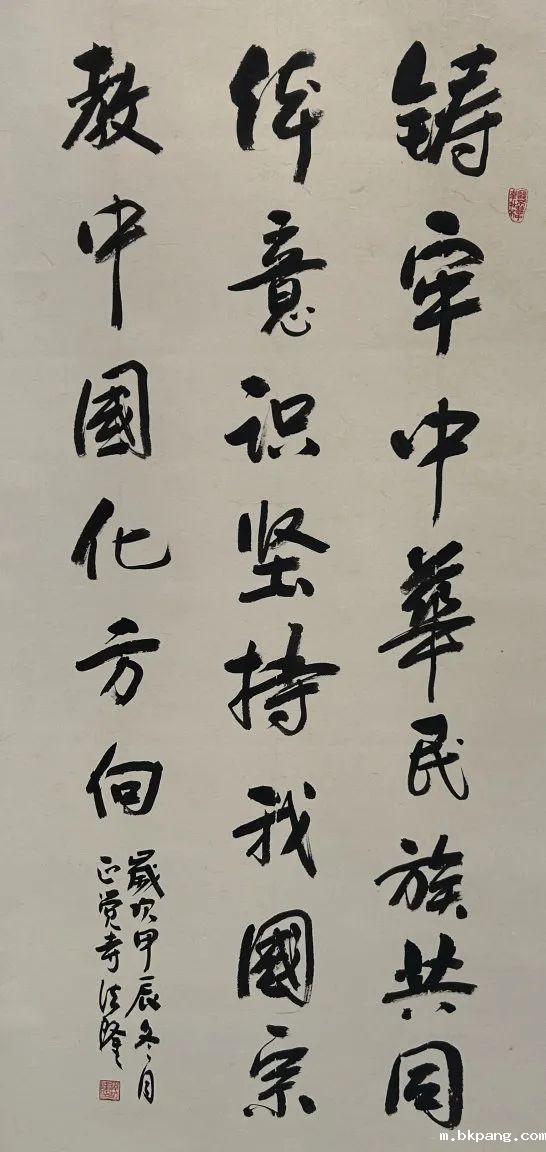 铸牢中華民族共同
体意识坚持我國宗
教中國化方向
歲次甲辰冬月
正觉寺法隆
m.bkpang.com